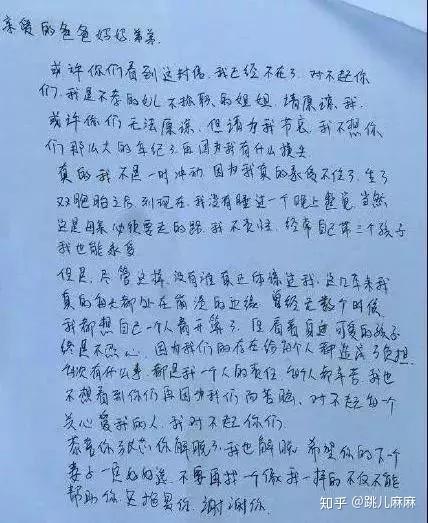 亲爱的爸爸妈妈弟弟
或许你们看到这封信,我已经不在了,对不起你
们,我是不孝的女儿不称职的姐姐,请原谅我,
或许你们无法原谅,但请为我节哀,我不想你
们那么大的年纪了再因为我有什么损失
真的我不是一时冲动,因为我真的承受不住了,生了
双胞胎之后到现在,我没有睡过一个晚上整觉,当然
这是母亲必须要走的路,我不责怪,经常自己带三个孩子
我也能承受
但是,尽管这样,没有谁真正体谅过我,这几年来我
真的每天都处在崩溃的边缘,曾经无数个时候
我都想自己一个人离开算了,但看着真正可爱的孩子
终是不忍心,因为我们的存在给每个人都造成了负担
每次有什么事,都是我一个人的责任,每个人都辛苦,我也
不想看到你们再因为我们而苦恼,对不起每一个
关心爱我的人,我对不起你们
恭喜你 你解脱了,我也解脱,希望你的下一个
妻子一定好好选,不要再找一个像我一样的不仅不能
帮助你还拖累你,谢谢你,
知乎 @跳儿麻麻